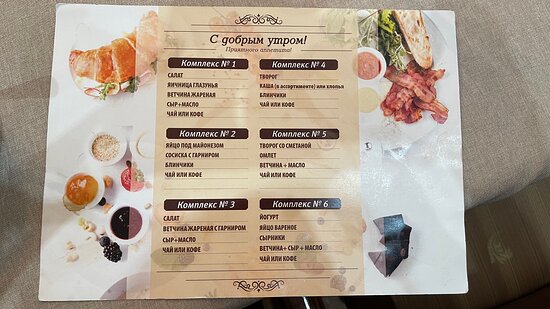 С добрым утром!
Приятного аппетита!
Комплекс № 1
САЛАТ
ЯИЧНИЦА ГЛАЗУНЬЯ
ВЕТЧИНА ЖАРЕНАЯ
СЫР+МАСЛО
ЧАЙ ИЛИ КОФЕ
Комплекс № 2
ЯЙЦО ПОД МАЙОНЕЗОМ
СОСИСКА С ГАРНИРОМ
БЛИНЧИКИ
ЧАЙ ИЛИ КОФЕ
Комплекс № 3
САЛАТ
ВЕТЧИНА ЖАРЕНАЯ С ГАРНИРОМ
СЫР+МАСЛО
ЧАЙ ИЛИ КОФЕ
Комплекс № 4
ТВОРОГ
КАША (в ассортименте) или ХЛОПЬЯ
БЛИНЧИКИ
ЧАЙ ИЛИ КОФЕ
Комплекс № 5
ТВОРОГ СО СМЕТАНОЙ
ОМЛЕТ
ВЕТЧИНА + МАСЛО
ЧАЙ ИЛИ КОФЕ
Комплекс № 6
ЙОГУРТ
ЯЙЦО ВАРЕНОЕ
СЫРНИКИ
ВЕТЧИНА+ СЫР + МАСЛО
ЧАЙ ИЛИ КОФЕ